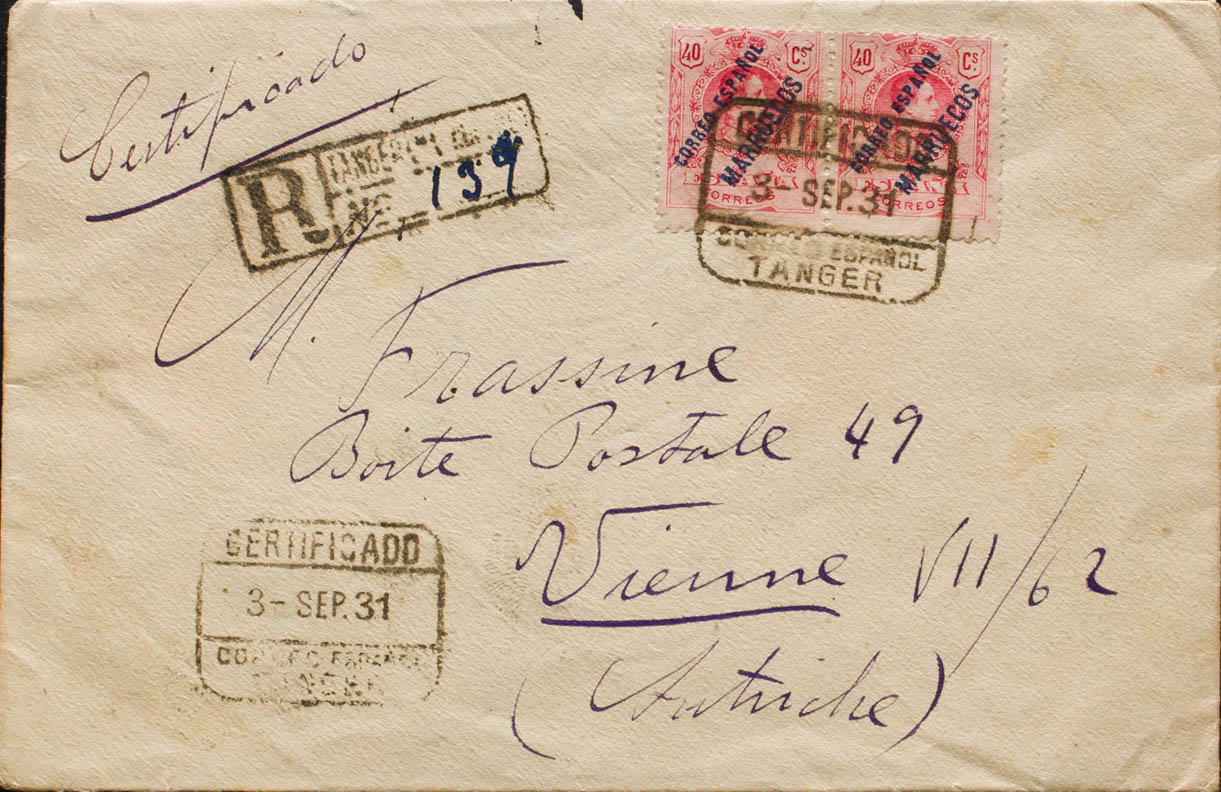 Certificado
R TANGER
No. 139
40 Cs
CORREO ESPAÑOL
MARRUECOS
CORREOS
40 Cs
CORREO ESPAÑOL
MARRUECOS
CORREOS
CERTIFICADO
3- SEP.31
CORREO ESPAÑOL
TANGER
M. Frassine
Boite Postale 49
Vienne VII/62
(Autriche)
CERTIFICADO
3- SEP.31
CORREO ESPAÑOL
TANGER